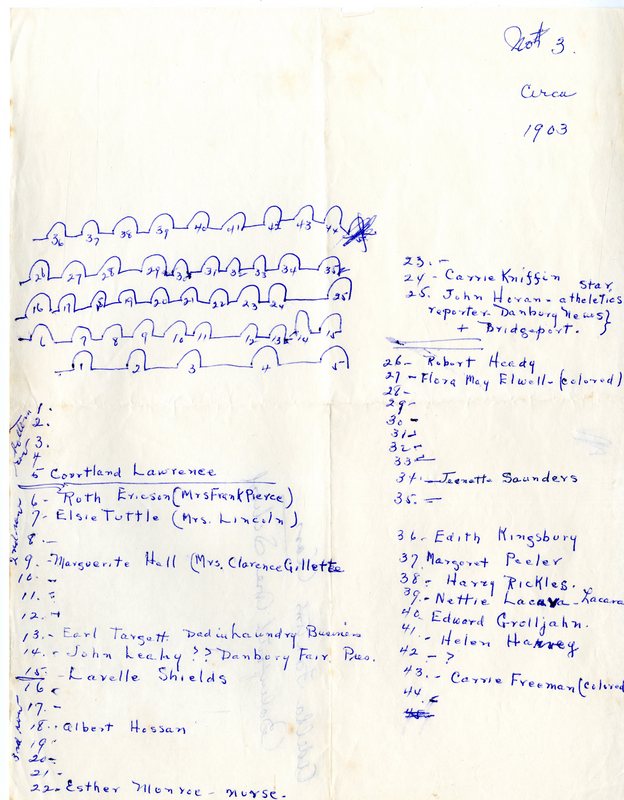 No# 3.
Circa
1903
36 37 38 39 40 41 42 43 44
26 27 28 29 30 31 32 33 34 35
16 17 18 19 20 21 22 23 24 25
6 7 8 9 10 11 12 13 14 15
1 2 3 4 5
1.
2.
3.
4
5 Courtland Lawrence
2nd row
6 - Roth Ericson (Mrs Frank Pierce)
7 - Elsie Tuttle (Mrs. Lincoln)
8 -
9. - Marguerite Hall (Mrs. Clarence Gillette
10 -
11. -
12. -
13. - Earl Targett Dad in Laundry Business
14. - John Leahy ?? Danbury Fair. Pres.
15. - Lavelle Shields
3rd row
16 -
17. -
18. - Albert Hossan
19 -
20 -
21 -
22 - Esther Monroe - nurse.
23. -
24 - Carrie Kniffin
25. John Horan - atheletics star,
reporter Danbury News }
+ Bridgeport. }
26 - Robert Heady
27 - Flora May Elwell - (colored)
28 -
29 -
30 -
31 -
32 -
33 -
34 - Jeanette Saunders
35. -
36 - Edith Kingsbury
37. Margaret Peeler
38 - Harry Rickles.
39. - Nettie Lacava - Lacava
40. Edward Grolljahn.
41. - Helen Harvey
42 - ?
43. - Carrie Freeman (colored
44. -
45 -